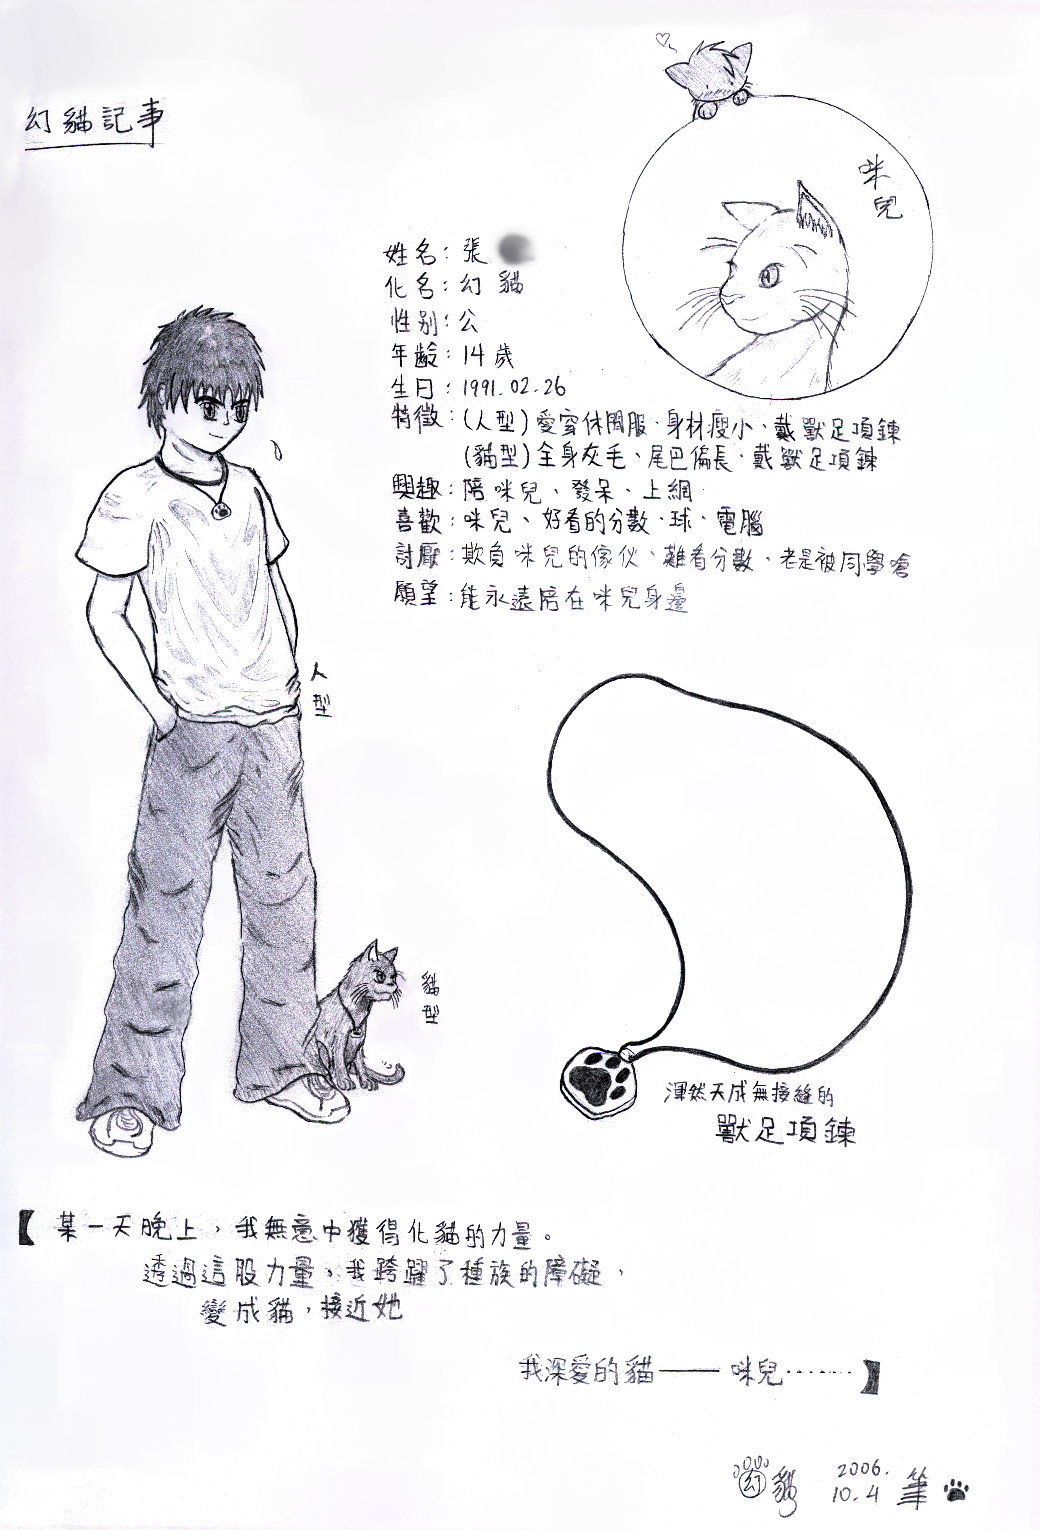 幻貓記事
咪兒
姓名：張
化名：幻貓
性別：公
年齡：14歲
生日：1991.02.26
特徵：(人型)愛穿休閒服、身材瘦小、戴獸足項鍊
(貓型)全身灰毛、尾巴偏長、戴獸足項鍊
興趣：陪咪兒、發呆、上網
喜歡：咪兒、好看的分數、球、電腦
討厭：欺負咪兒的傢伙、難看分數、老是被同學嗆
願望：能永遠陪在咪兒身邊
人型
貓型
渾然天成無接縫的
獸足項鍊
【某一天晚上，我無意中獲得化貓的力量。
透過這股力量，我跨躍了種族的障礙，
變成貓，接近她
我深愛的貓——咪兒⋯⋯⋯】
幻貓 2006.
10.4 筆